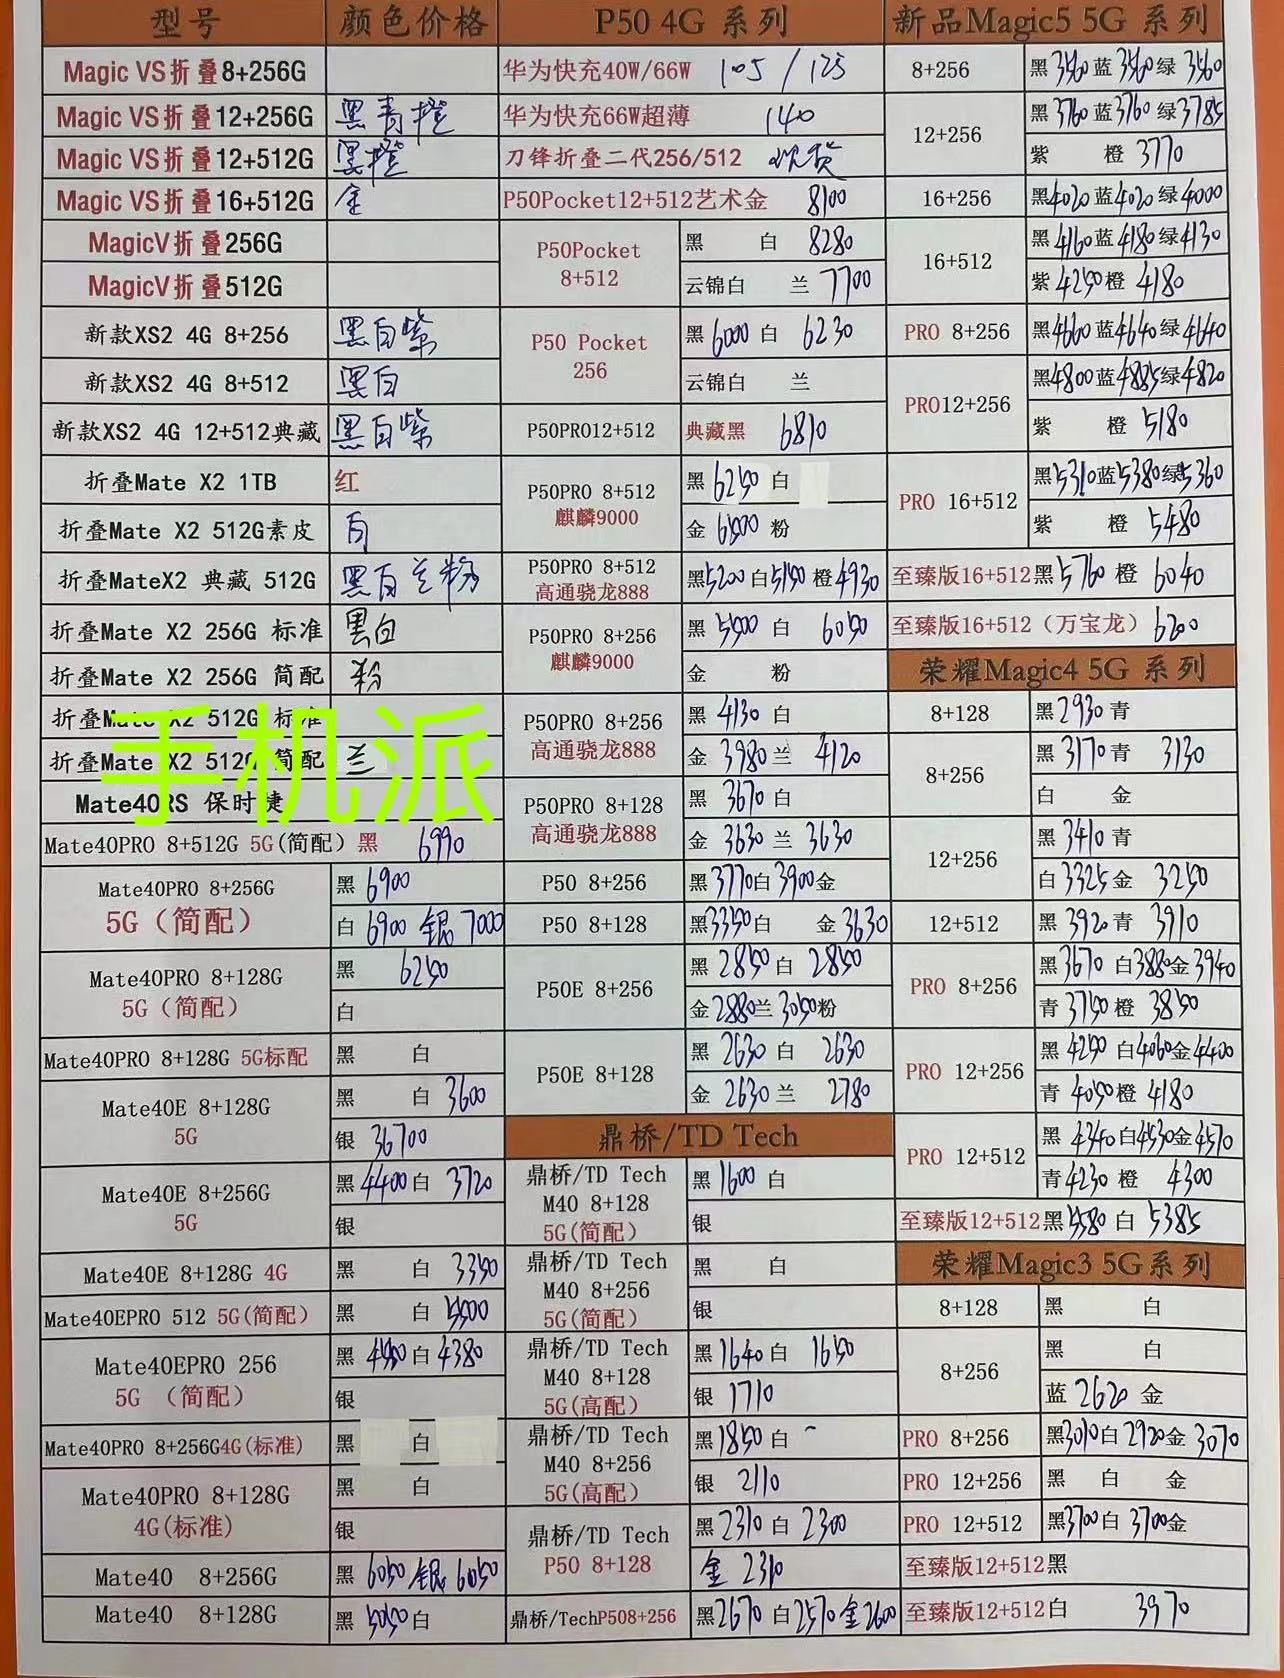 型号 颜色价格 P50 4G 系列 新品Magic5 5G 系列
Magic VS折叠8+256G
Magic VS折叠12+256G 黑青橙
Magic VS折叠12+512G 黑橙
Magic VS折叠16+512G 金
MagicV折叠256G
MagicV折叠512G
新款XS2 4G 8+256 黑白紫
新款XS2 4G 8+512 黑白
新款XS2 4G 12+512典藏 黑白紫
折叠Mate X2 1TB 红
折叠Mate X2 512G素皮 白
折叠MateX2 典藏 512G 黑白兰粉
折叠Mate X2 256G 标准 黑白
折叠Mate X2 256G 简配 粉
折叠Mate X2 512G 标准
折叠Mate X2 512G 简配 兰
手机派
Mate40RS 保时捷
Mate40PRO 8+512G 5G(简配) 黑 6990
Mate40PRO 8+256G
5G(简配)
黑 6900
白 6900 银 7000
Mate40PRO 8+128G
5G(简配)
黑 6250
白
Mate40PRO 8+128G 5G标配 黑 白
Mate40E 8+128G
5G
黑 白 3600
银 36700
Mate40E 8+256G
5G
黑 4400 白 3720
银
Mate40E 8+128G 4G 黑 白 3350
Mate40EPRO 512 5G(简配) 黑 白 5500
Mate40EPRO 256
5G (简配)
黑 4550 白 4380
银
Mate40PRO 8+256G4G(标准) 黑 白
Mate40PRO 8+128G
4G(标准)
黑 白
银
Mate40 8+256G 黑 6050 银 6050
Mate40 8+128G 黑 5050 白
华为快充40W/66W 105 / 125
华为快充66W超薄 140
刀锋折叠二代256/512 收货
P50Pocket12+512艺术金 8100
P50Pocket
8+512
黑 白 8280
云锦白 兰 7700
P50 Pocket
256
黑 6000 白 6230
云锦白 兰
P50PRO12+512 典藏黑 6810
P50PRO 8+512
麒麟9000
黑 6250 白
金 6500 粉
P50PRO 8+512
高通骁龙888
黑 5200 白 5150 橙 4930
P50PRO 8+256
麒麟9000
黑 5500 白 6050
金 粉
P50PRO 8+256
高通骁龙888
黑 4130 白
金 3980 兰 4120
P50PRO 8+128
高通骁龙888
黑 3670 白
金 3630 兰 3630
P50 8+256 黑 3770 白 3900 金
P50 8+128 黑 3350 白 金 3630
P50E 8+256
黑 2850 白 2850
金 2880 兰 3050 粉
P50E 8+128
黑 2630 白 2630
金 2630 兰 2780
鼎桥/TD Tech
鼎桥/TD Tech
M40 8+128
5G(简配)
黑 1600 白
银
鼎桥/TD Tech
M40 8+256
5G(简配)
黑 白
银
鼎桥/TD Tech
M40 8+128
5G(高配)
黑 1640 白 1650
银 1710
鼎桥/TD Tech
M40 8+256
5G(高配)
黑 1850 白 -
银 2110
鼎桥/TD Tech
P50 8+128
黑 2310 白 2300
金 2310
鼎桥/TechP508+256 黑 2670 白 2570 金 2600
8+256 黑 3560 蓝 3560 绿 3560
12+256
黑 3760 蓝 3760 绿 3785
紫 橙 3770
16+256 黑 4020 蓝 4020 绿 4000
16+512
黑 4160 蓝 4180 绿 4130
紫 4250 橙 4180
PRO 8+256 黑 4660 蓝 4640 绿 4640
PRO12+256
黑 4800 蓝 4885 绿 4820
紫 橙 5180
PRO 16+512
黑 5310 蓝 5380 绿 5360
紫 橙 5480
至臻版16+512 黑 5760 橙 6040
至臻版16+512(万宝龙) 6200
荣耀Magic4 5G 系列
8+128 黑 2930 青
8+256
黑 3170 青 3130
白 金
12+256
黑 3410 青
白 3325 金 3250
12+512 黑 3920 青 3910
PRO 8+256
黑 3670 白 3880 金 3940
青 3750 橙 3850
PRO 12+256
黑 4250 白 4060 金 4400
青 4050 橙 4180
PRO 12+512
黑 4340 白 4530 金 4570
青 4230 橙 4300
至臻版12+512 黑 5580 白 5385
荣耀Magic3 5G系列
8+128 黑 白
8+256
黑 白
蓝 2620 金
PRO 8+256 黑 3010 白 2920 金 3070
PRO 12+256 黑 白 金
PRO 12+512 黑 3700 白 3700 金
至臻版12+512黑
至臻版12+512白 3970